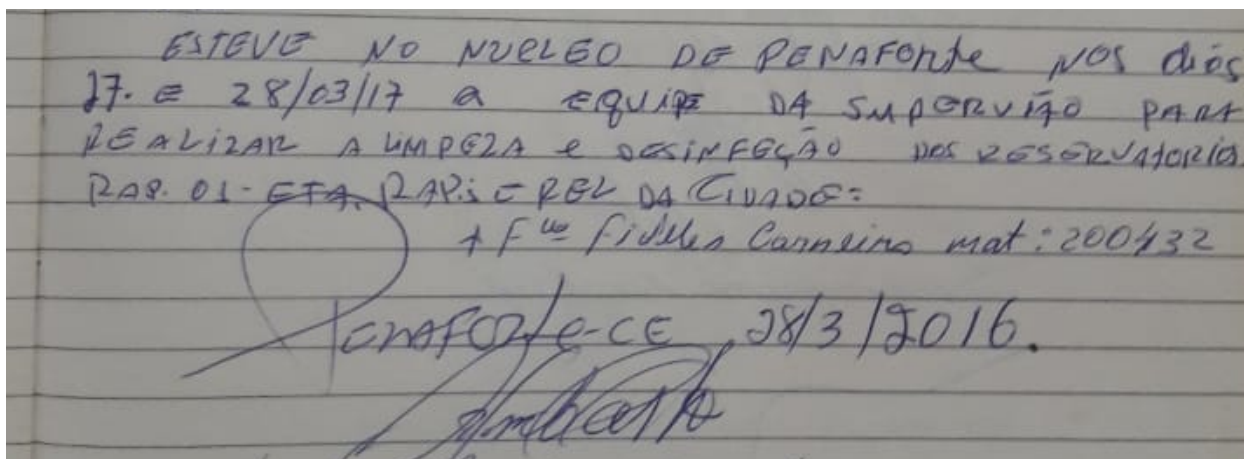 ESTEVE NO NUCLEO DE PENAFORte NOS diós
27. E 28/03/17 a EQUIPE DA SUPERVIÃO PARA
REALIZAR A LIMPEZA e DESINFEÇÃO DOS RESERVATORIOS.
RAP. 01 - ETA, RAP. E REL DA CIDADE:
+ Fco Fideles Carneiro mat: 200432
PENAFORte-CE, 28/3/2016.